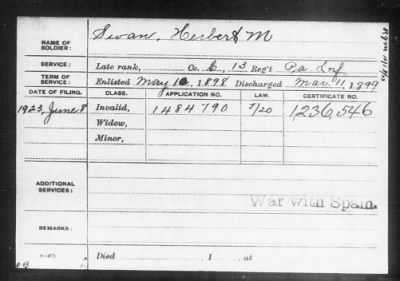 NAME OF SOLDIER: Swan, Herbert M
SERVICE: Late rank, Co. C, 13 Reg't Pa Inf
TERM OF SERVICE: Enlisted May 10, 1898 Discharged Mar. 11, 1899
DATE OF FILING. CLASS. APPLICATION NO. LAW. CERTIFICATE NO.
1923, June 8 Invalid, 1484790 1236,546
Widow,
Minor,
ADDITIONAL SERVICES:
War with Spain.
REMARKS:
Died , 1 , at